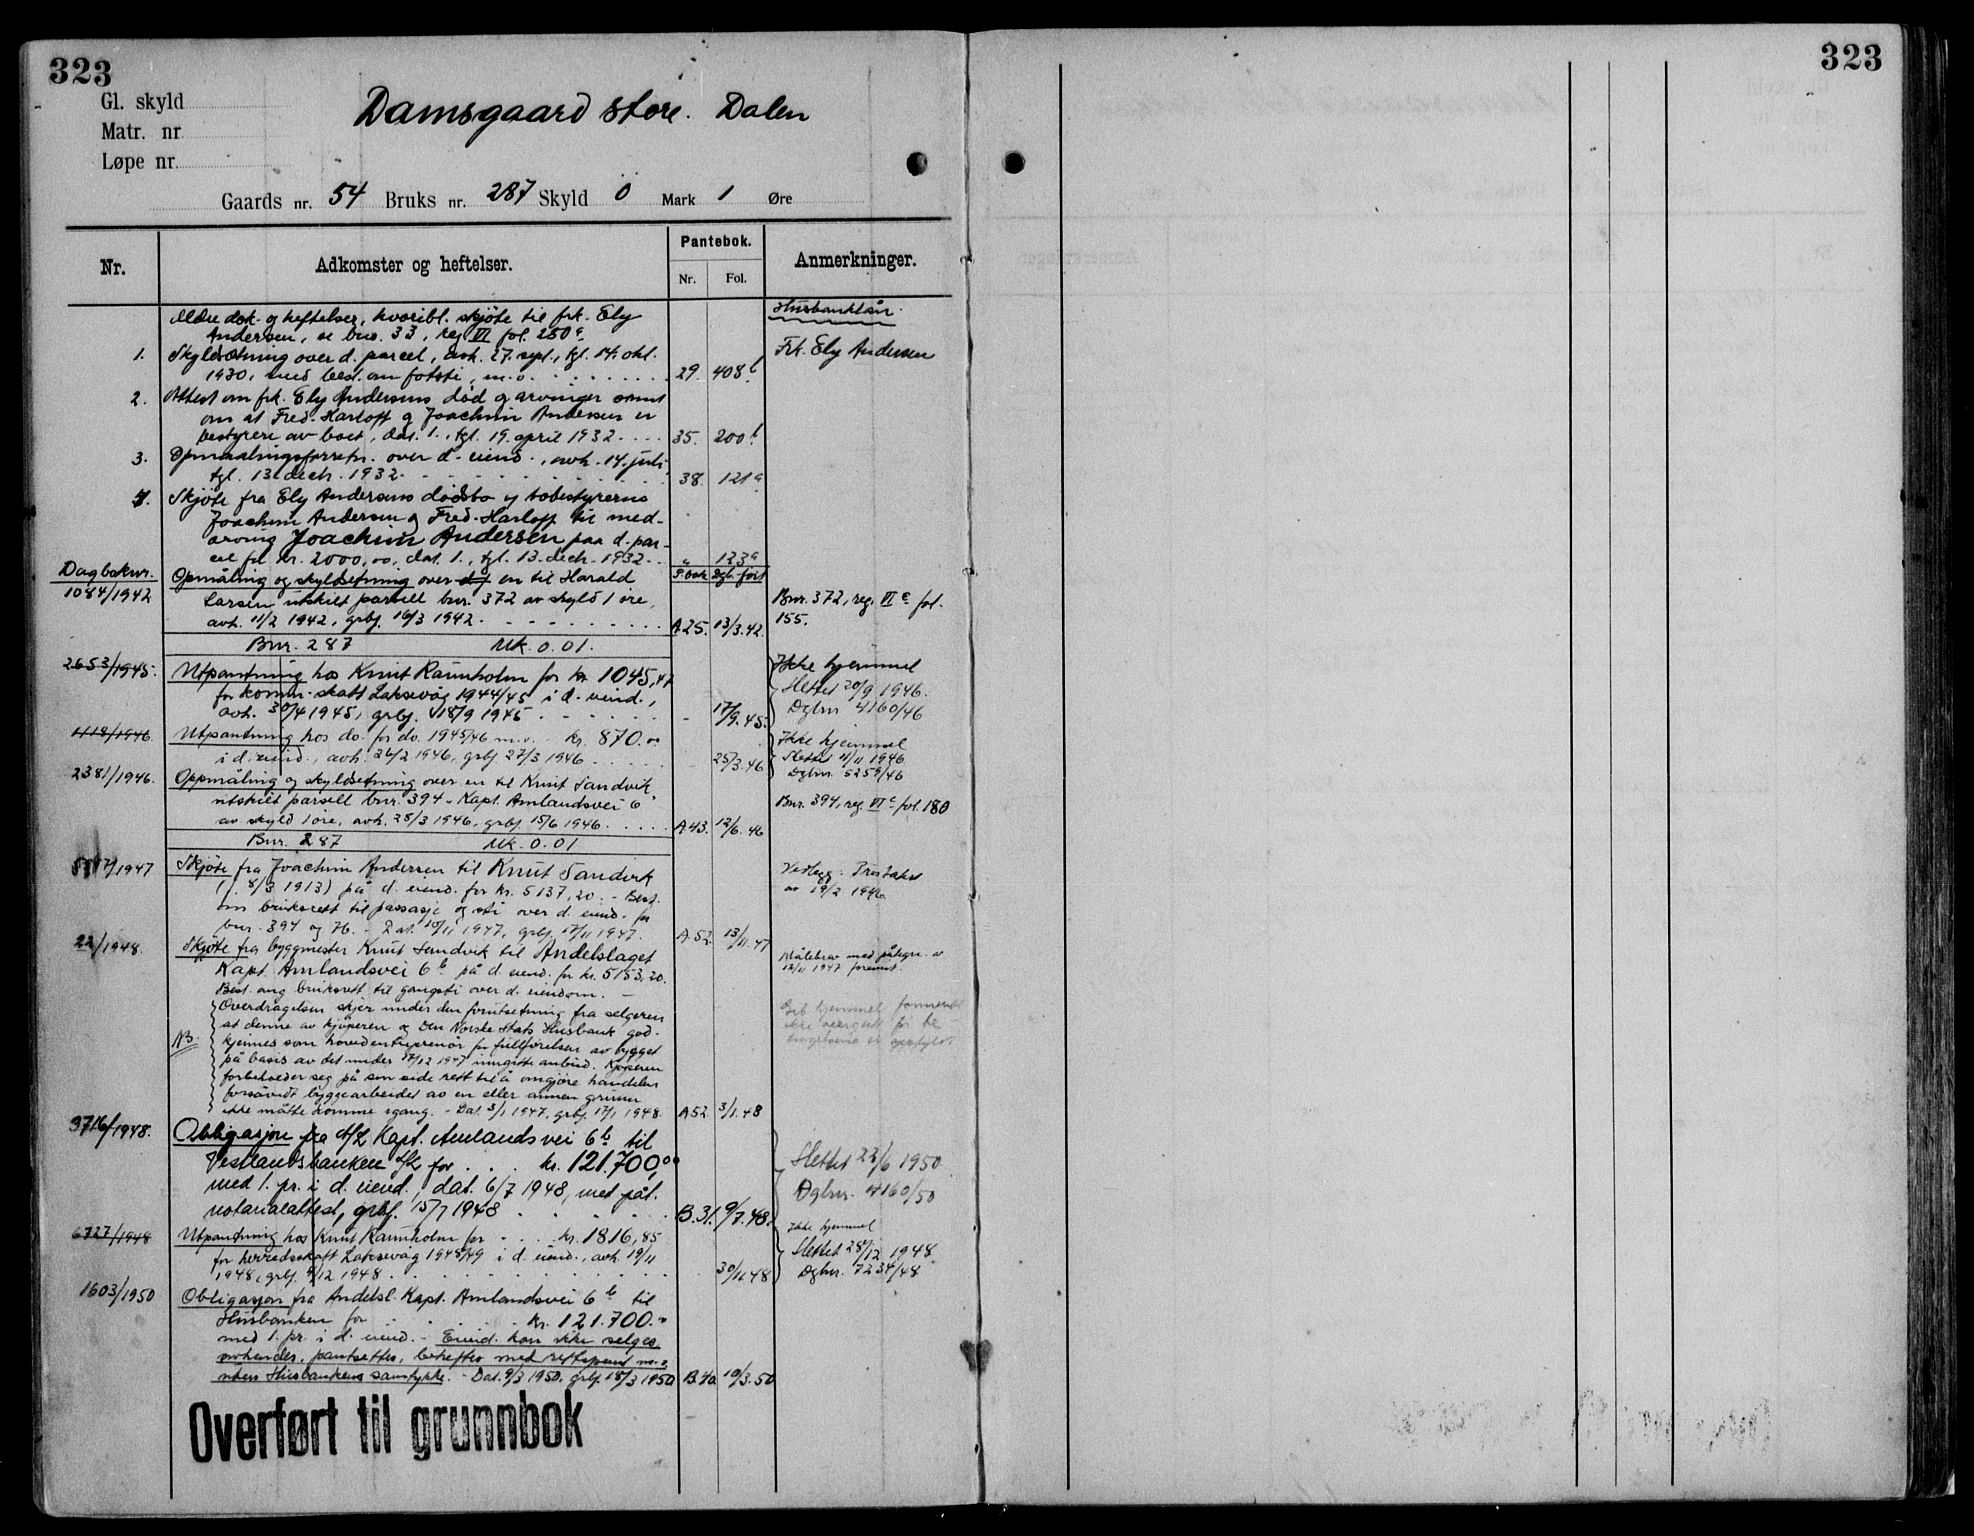 323
323
Gl. skyld
Matr. nr.
Løpe nr.
Damsgaard store. Dalen
Gaards nr. 54 Bruks nr. 287 Skyld 0 Mark 1 Øre
Nr.
Adkomster og heftelser.
Pantebok.
Nr.
Fol.
Anmerkninger.
Ældre dok. og heftelser, hvoribl. skjøte til frk. Ely
Andersen, se bnr. 33, reg VI fol. 250a.
Husbanklån.
1. Skyldsætning over d. parcel, avh. 27. sept., tgl. 14. okt.
1930, med best. om fotsti, m.v. 29. 408b
Frk. Ely Andersen
2. Attest om frk. Ely Andersens død og arvinger samt
om at Fred. Harloff og Joachim Andersen er
bestyrere av boet, dat. 1., tgl. 19. april 1932. 35. 200b.
3. Opmaalingsforretn. over d. eiend., avh. 14. juli
tgl. 13. decb. 1932. 38. 121a
4. Skjøte fra Ely Andersens dødsbo v/ bobestyrerne
Joachim Andersen og Fred. Harloff til med-
arving Joachim Andersen paa d. par-
cel for kr. 2000,00, dat. 1., tgl. 13. decb. 1932. " 123a
Dagboknr.
1044/1942
P.bok Dgb. ført
Opmåling og skyldsetning over en til Harald
Larsen utskilt parsell bnr. 372 av skyld 1 øre,
avh. 11/2 1942, grbf. 16/3 1942. A.25. 13/3.42.
Bnr. 372, reg. VI c fol.
155.
Bnr. 287 Mk. 0.01.
2653/1945.
Utpantning hos Knut Raunholm for kr. 1045,47
for komm. skatt Laksevåg 1944/45 i d. eiend.,
avh. 30/4 1945, grbf. 18/9 1945. - 17/9.45.
Ikke hjemmel
Slettet 20/9 1946.
Dgbnr 4160/46
1118/1946.
Utpantning hos do. for do. 1945/46 m.v. kr. 870.00
i d. eiend., avh. 26/2 1946, grbf 27/3 1946. 25/3.46
Ikke hjemmel
Slettet 11/11 1946
Dgbnr. 5259/46
2381/1946.
Oppmåling og skyldsetning over en til Knut Sandvik
utskilt parsell bnr. 394 "Kapt. Amlandsvei 6"
av skyld 1 øre, avh. 25/3 1946, grbf 15/6 1946. A.43. 12/6.46
Bnr. 394, reg. VI c fol. 180
Bnr. 287 Mk. 0.01
/1947
Skjøte fra Joachim Andersen til Knut Sandvik
(f. 8/3 1913) på d. eiend. for kr. 5137,20. - Best.
om bruksrett til passasje og sti over d. eiend. for
bnr. 394 og 76. - Dat. 10/11 1947, grbf. 17/11 1947. A.52. 13/11.47
Vedlegg: Pristakst
av 19/2 1946.
22/1948.
Skjøte fra byggmester Knut Sandvik til Andelslaget
Kapt. Amlandsvei 6b på d. eiend. for kr. 5153,20.
Best. ang. bruksrett til gangsti over d. eiendom. -
Målebrev med påtegn. av
12/11 1947 forevist.
NB.
Overdragelsen skjer under den forutsetning fra selgeren
at denne av kjøperen og Den Norske Stats Husbank god-
kjennes som hovedentreprenør for fullførelsen av bygget
på basis av det under 17/12 1947 inngitte anbud. Kjøperen
forbeholder seg på sin side rett til å omgjøre handelen
forsåvidt byggearbeidet av en eller annen grunn
ikke måtte komme igang. - Dat. 3/1 1947, grbf. 17/1 1948. A52 3/1.48
hjemmel
ikke
3716/1948.
Obligasjon fra A/L Kapt. Amlandsvei 6b til
Vestlandsbanken A/L for . . . kr. 121.700,00
med 1. pr. i d. eiend., dat. 6/7 1948, med påt.
notarialattest, grbf. 15/7 1948 B.31. 9/7.48.
Slettet 23/6 1950.
Dgbnr. 4160/50
6727/1948
Utpantning hos Knut Raunholm for - . . . kr. 1816,85
for herredsskatt Laksevåg 1948/49 i d. eiend., avh. 19/11
1948, grbf. 4/12 1948. 30/11.48
Ikke hjemmel
Slettet 28/12 1948
Dgbnr. 7234/48
1603/1950
Obligasjon fra Andelsl. Kapt. Amlandsvei 6b til
Husbanken for . . . kr. 121.700.00
med 1. pr. i d. eiend. - Eiend. kan ikke selges
avhendes, pantsettes, beheftes med rettspant m.v.
uten Husbankens samtykke. - Dat. 9/3 1950, grbf. 18/3 1950 B.40. 10/3.50
Overført til grunnbok